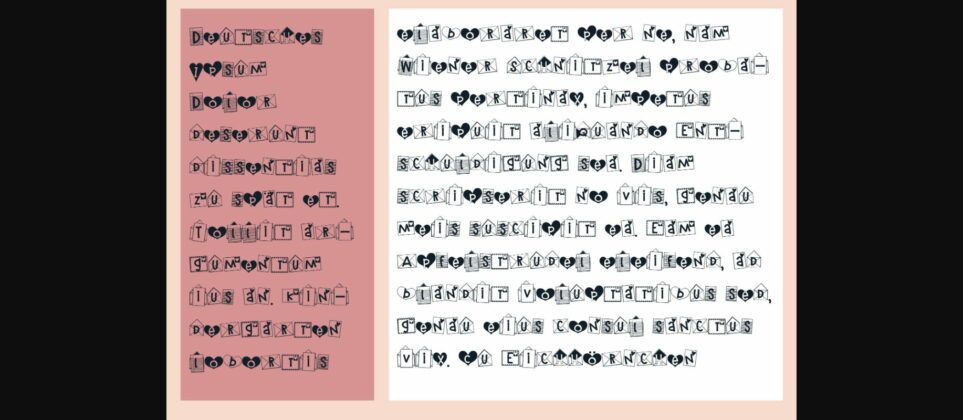 Deutsches
ipsum
Dolor
deserunt
dissentias
zu spät et.
Tollit ar-
gumentum
ius an. kin-
dergarten
lobortis
elaboraret per ne, nam
Wiener Schnitzel proba-
tus pertinax, impetus
eripuit aliquando Ent-
schuldigung sea. Diam
scripserit no vis, genau
meis suscipit ea. Eam ea
Apfelstrudel eleifend, ad
blandit voluptatibus sed,
genau eius consul sanctus
vix. cu Eichhörnchen